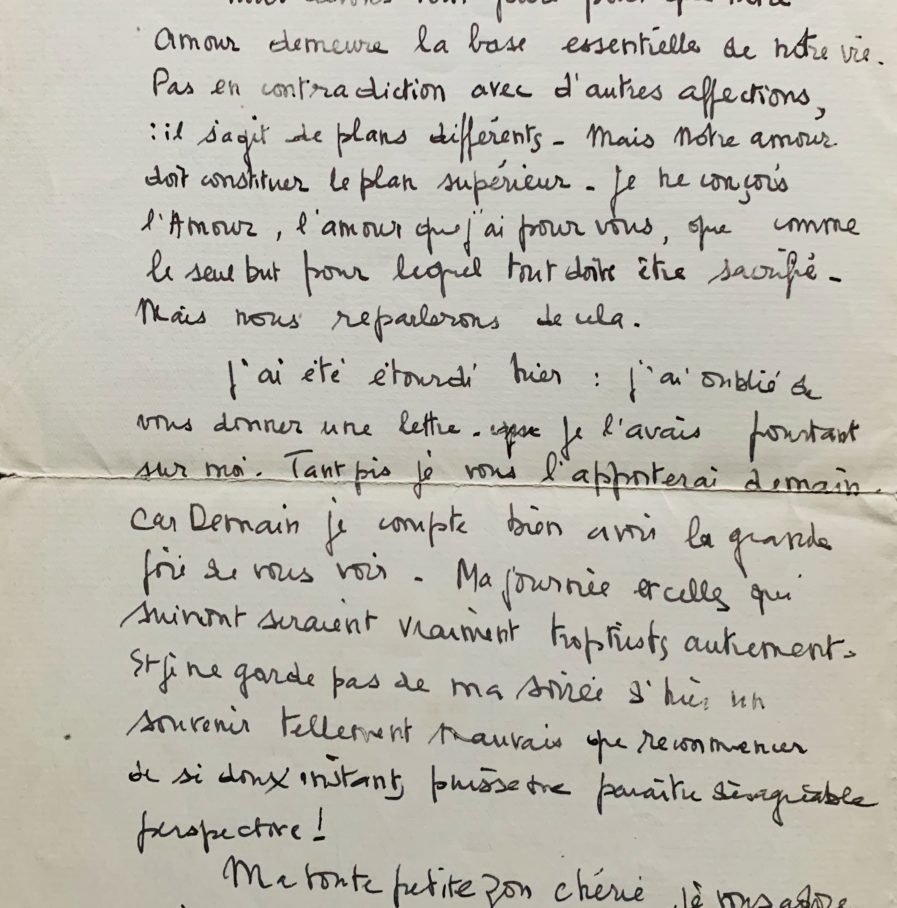 Amour demeure la base essentielle de notre vie.
Pas en contradiction avec d'autres affections,
: il s'agit de plans différents - Mais notre amour
doit constituer le plan supérieur - Je ne conçois
l'Amour, l'amour que j'ai pour vous, que comme
le seul but pour lequel tout doive être sacrifié -
Mais nous reparlerons de cela.
J'ai été étourdi hier : j'ai oublié de
vous donner une lettre. Je l'avais pourtant
sur moi. Tant pis je vous l'apporterai demain.
Car Demain je compte bien avoir la grande
joie de vous voir - Ma journée et celles qui
suivront seraient vraiment trop tristes autrement.
Et je ne garde pas de ma soirée d'hier un
souvenir tellement mauvais que recommencer
de si doux instants puisse me paraître désagréable
perspective !
Ma toute petite Zon chérie je vous adore